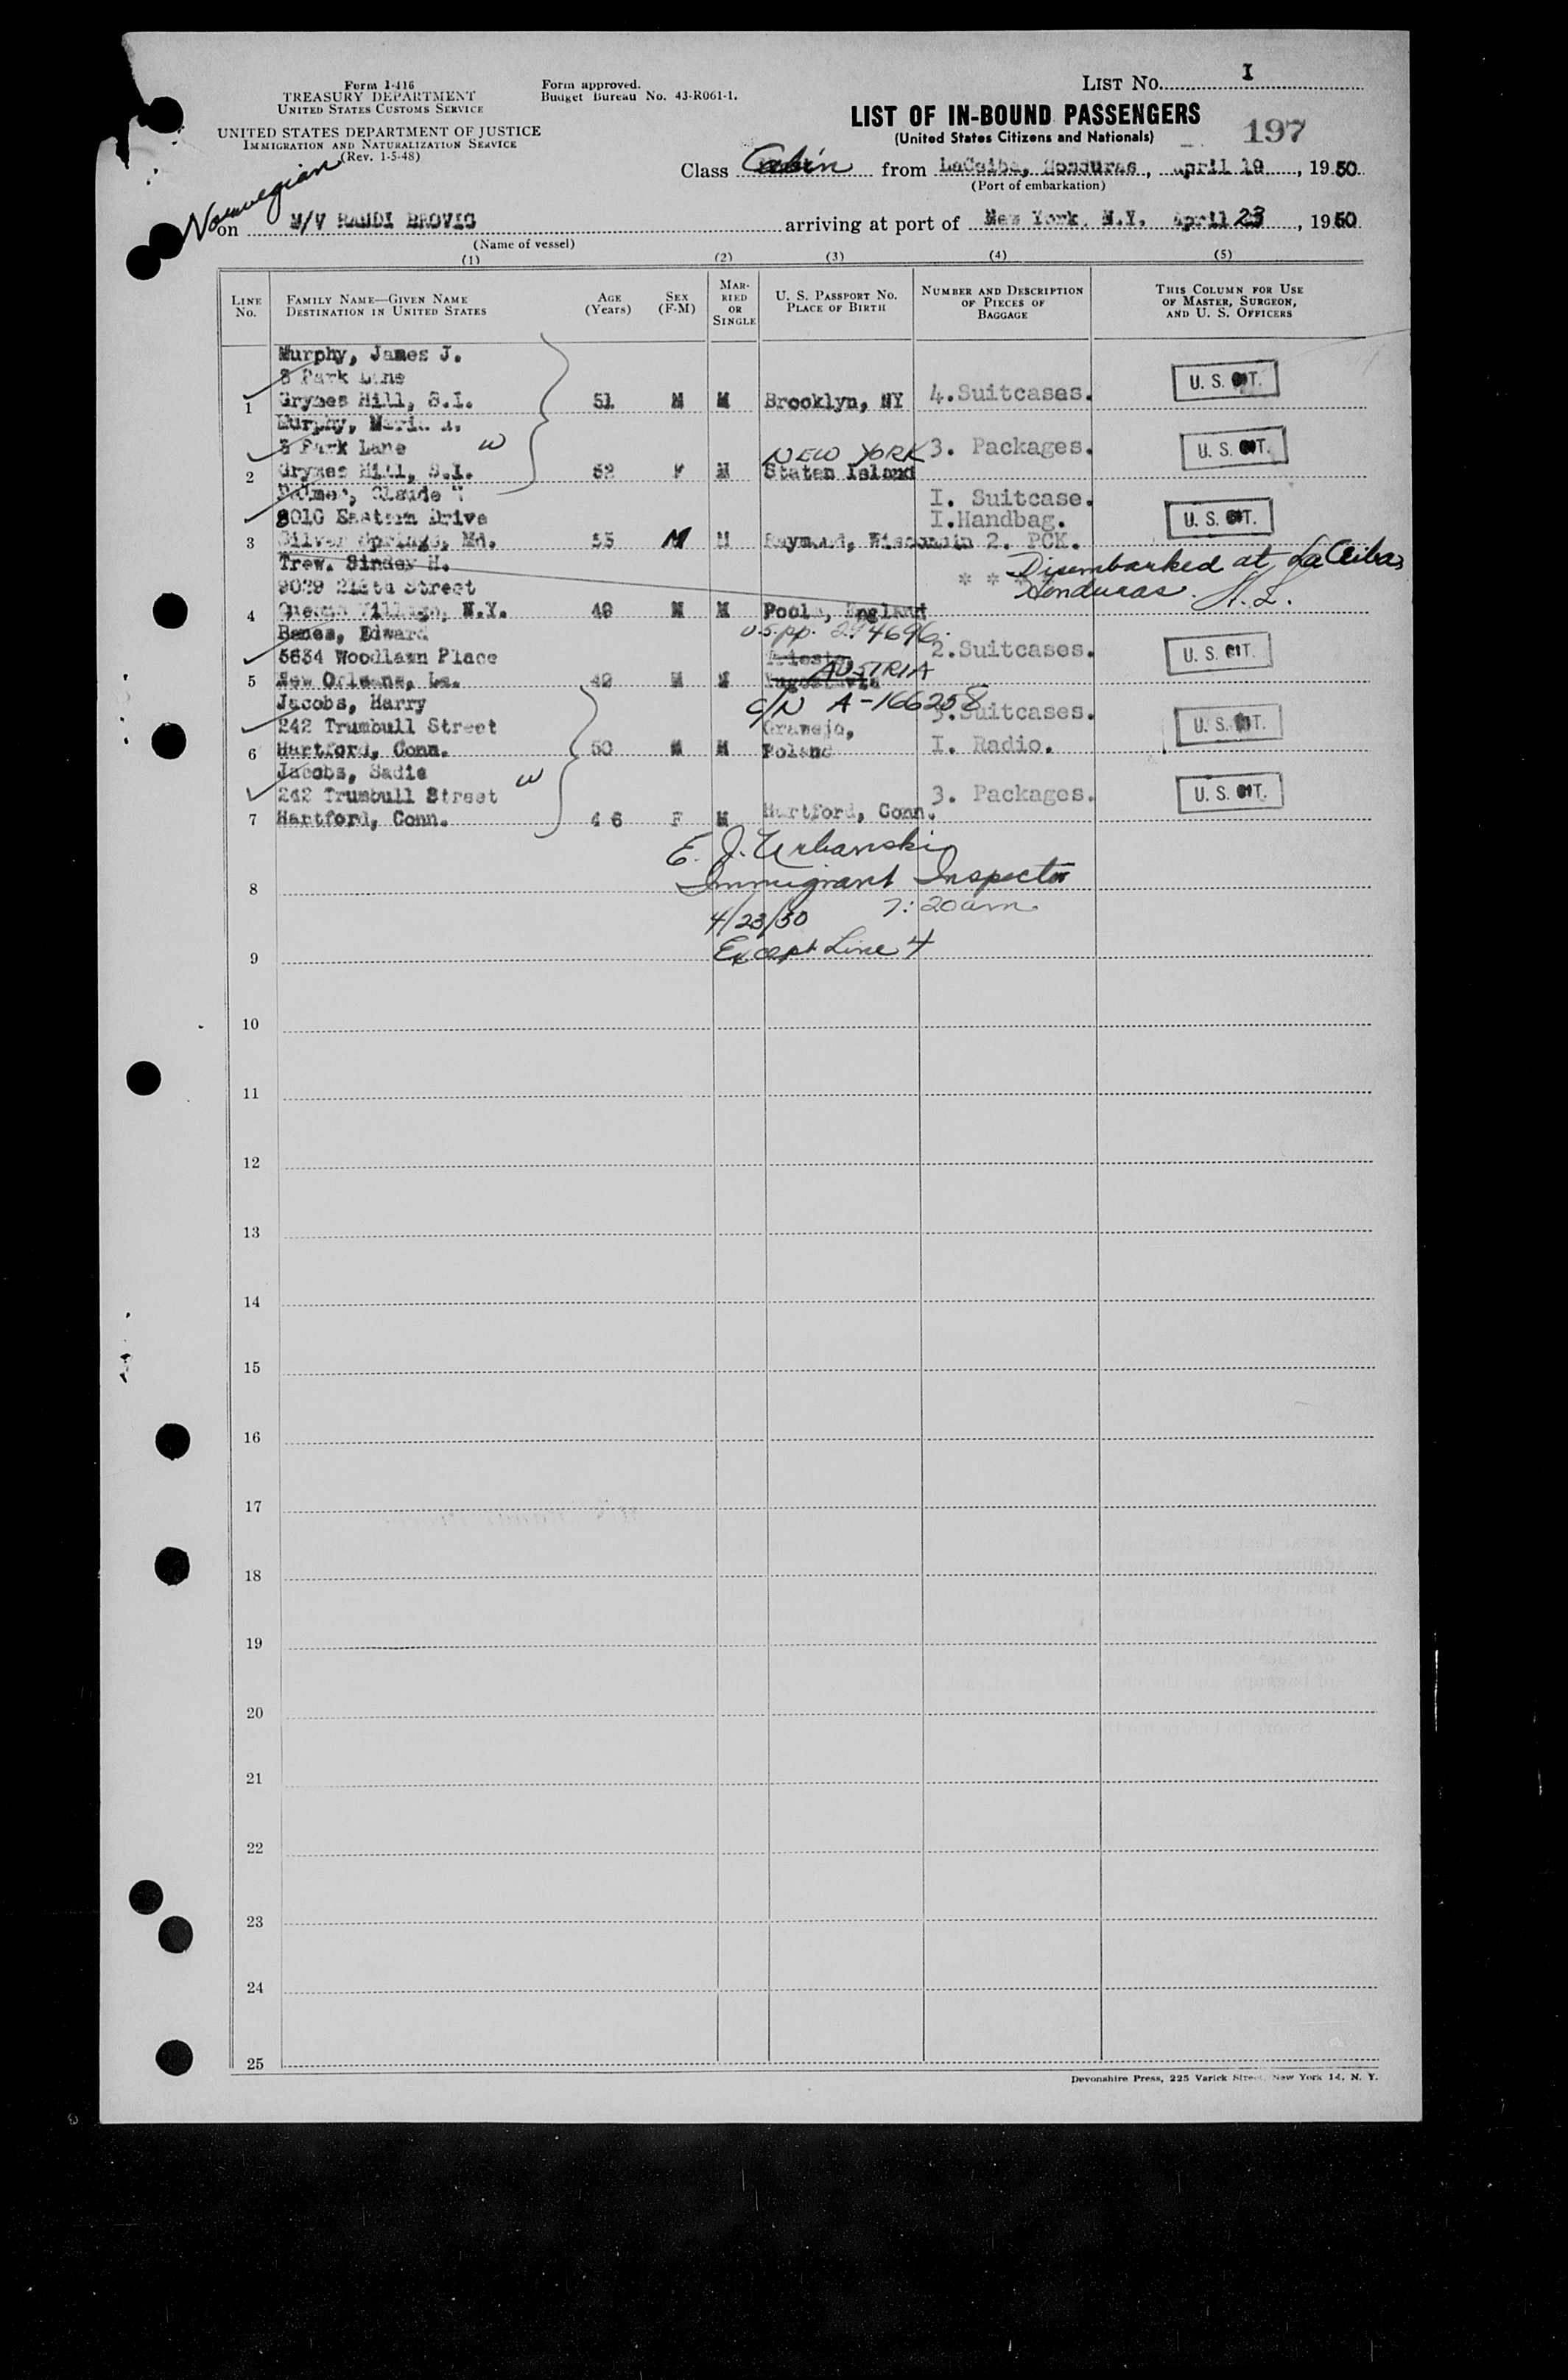 Form I-416
TREASURY DEPARTMENT
UNITED STATES CUSTOMS SERVICE
UNITED STATES DEPARTMENT OF JUSTICE
IMMIGRATION AND NATURALIZATION SERVICE
(Rev. 1-5-48)
Form approved.
Budget Bureau No. 43-R061-1.
LIST NO. I
LIST OF IN-BOUND PASSENGERS
(United States Citizens and Nationals)
197
Class Cabin from LaCeiba, Honduras, April 19, 1950
(Port of embarkation)
Norwegian
on M/V RANDI BROVIG arriving at port of New York, N.Y. April 23, 1950
(Name of vessel)
(1) (2) (3) (4) (5)
LINE NO.
FAMILY NAME—GIVEN NAME
DESTINATION IN UNITED STATES
AGE (Years)
SEX (F-M)
MARRIED OR SINGLE
U. S. PASSPORT NO.
PLACE OF BIRTH
NUMBER AND DESCRIPTION OF PIECES OF BAGGAGE
THIS COLUMN FOR USE OF MASTER, SURGEON, AND U. S. OFFICERS
Murphy, James J.
Park Lane
1 Grymes Hill, S.I. 51 M M Brooklyn, NY 4.Suitcases. U. S. CIT.
Murphy,
Park Lane W NEW YORK 3. Packages. U. S. CIT.
2 Grymes Hill, S.I. 52 F M Staten Island
Palmer, Claude
I. Suitcase.
8010 Eastern Drive I.Handbag. U. S. CIT.
3 Silver Springs, Md. 55 M M Raymond, Wisconsin 2. PCK.
Trew. H.
Street * * Disembarked at La Ceiba,
Honduras. 
4 Queens Village, N.Y. 49 M M Poole, England
Banes, Edward U.S. pp.
5634 Woodlawn Place Trieste, 2.Suitcases. U. S. CIT.
AUSTRIA
5 New Orleans, La. 49 M M Yugoslavia
Jacobs, Harry C/N A-166258
242 Trumbull Street Suitcases. U. S. CIT.
6 Hartford, Conn. 50 M M Poland I. Radio.
Jacobs, Sadie W
242 Trumbull Street 3. Packages. U. S. CIT.
7 Hartford, Conn. 46 F M Hartford, Conn.
E. J. Urbanski
8 Immigrant Inspector
4/23/50 7:20am
9 Except Line 4
10
11
12
13
14
15
16
17
18
19
20
21
22
23
24
25
Devonshire Press, 225 Varick Street, New York 14, N. Y.